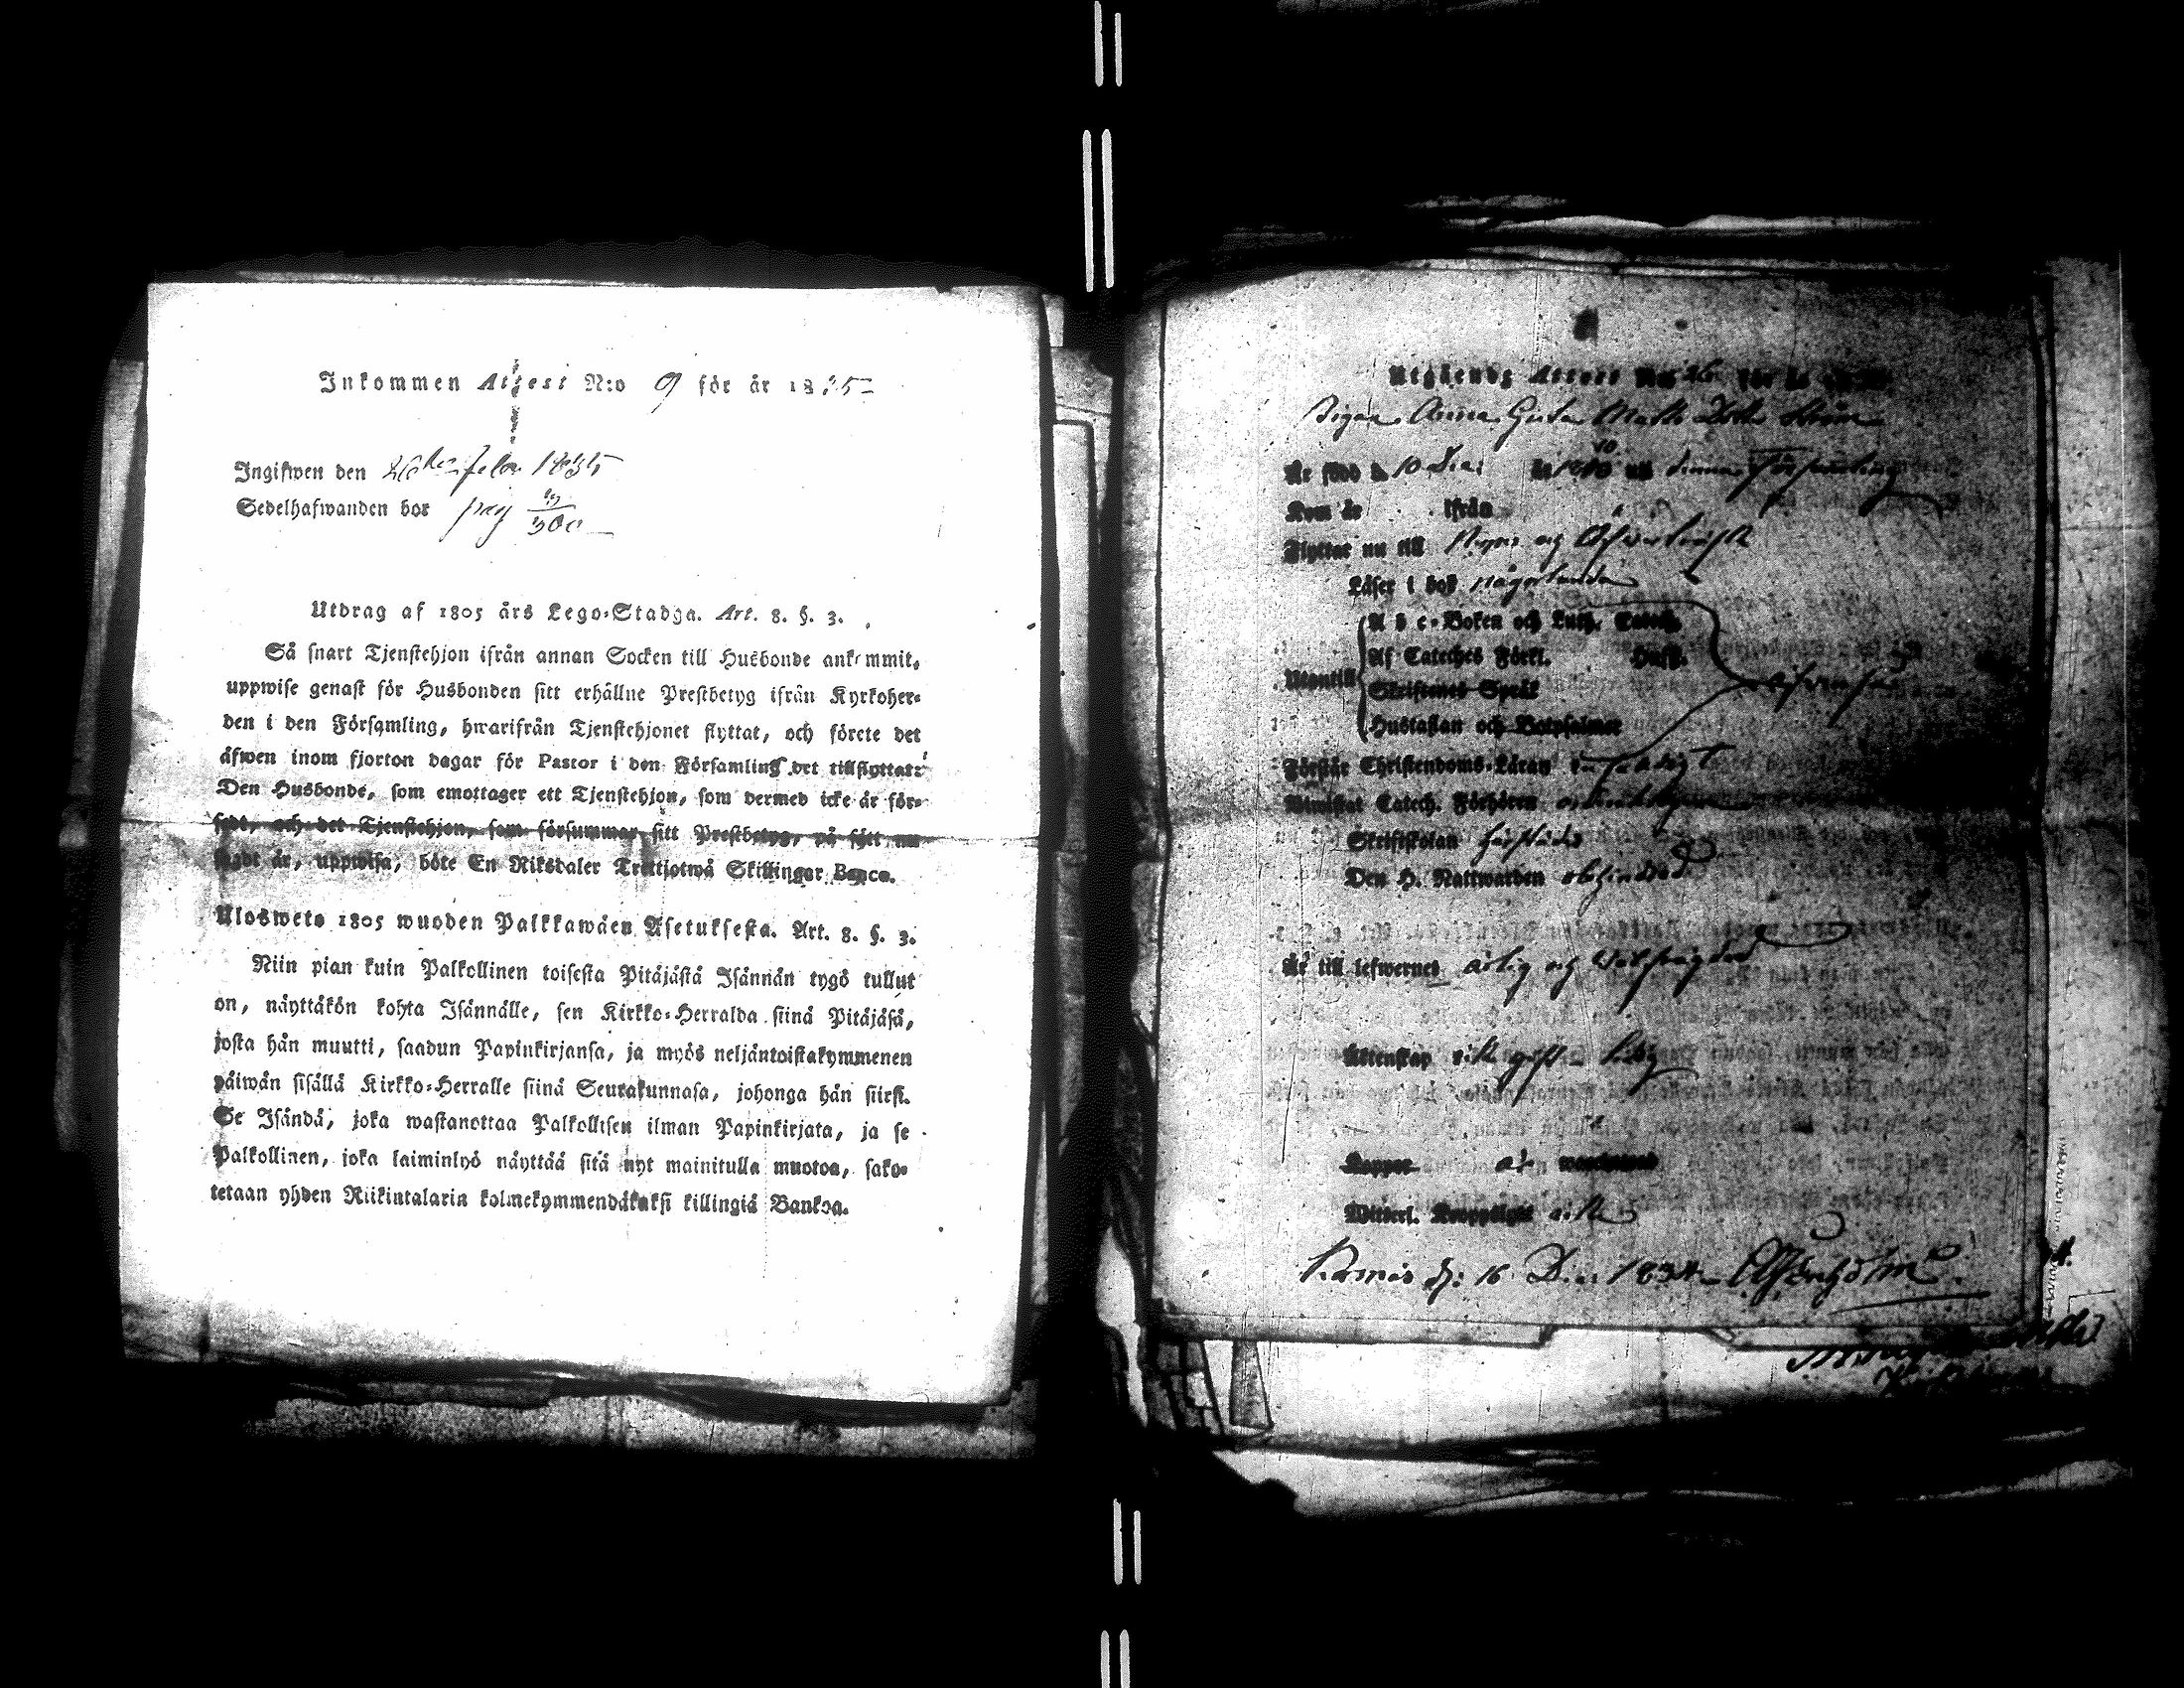 Inkommen Attest N:o 9 för år 1835
Ingifwen den 26 febr 1835
Sedelhafwanden bor pag 300
Utdrag af 1805 års Lego-Stadga. Art. 8. §. 3.
Så snart Tjenstehjon ifrån annan Socken till Husbonde ankommit,
uppwise genast för Husbonden sitt erhållne Prestbetyg ifrån Kyrkoher-
den i den Församling, hwarifrån Tjenstehjonet flyttat, och förete det
äfwen inom fjorton dagar för Pastor i den Församling det tillflyttat:
Den Husbonde, som emottager ett Tjenstehjon, som dermed icke är för-
sedt, och det Tjenstehjon, som försummar sitt Prestbetyg, på sätt nu
sagdt är, uppwisa, böte En Riksdaler Trettiotwå Skillingar Banco.
Ulosweto 1805 wuoden Palkkawäen Asetuksesta. Art. 8. §. 3.
Niin pian kuin Palkollinen toisesta Pitäjästä Isännän tygö tullut
on, näyttäkön kohta Isännälle, sen Kirkko-Herralda siinä Pitäjäsä,
josta hän muutti, saadun Papinkirjansa, ja myös neljäntoistakymmenen
päiwän sisällä Kirkko-Herralle siinä Seurakunnasa, johonga hän siirsi.
Se Isändä, joka wastanottaa Palkollisen ilman Papinkirjata, ja se
Palkollinen, joka laiminlyö näyttää sitä nyt mainitulla muotoa, sako-
tetaan yhden Riikintalarin kolmekymmendäkaksi killingiä Bankoa.
Utgående Attest N:o för år
Pigan Anna Greta Matts Dotter
Är född d. 10 Dec: år 1810 uti denna församling
Kom år ifrån
Flyttar nu till och
Läser i bok någorlunda
A b c-Boken och Luth. Catech.
Af Cateches Förkl. Husf.
Utantill
Skriftenes Språk
Hustaflan och Botpsalmer
Förstår Christendoms-Läran
Bimistat Catech. Förhören
Skriftskolan härstädes
Den H. Nattwarden obehindrad
Är till lefwernet ärlig och wälfrägdad
Ächtenskap icke gift ledig
Koppor
Witterl. Kroppslyte icke
d: 16 Dec: 1834